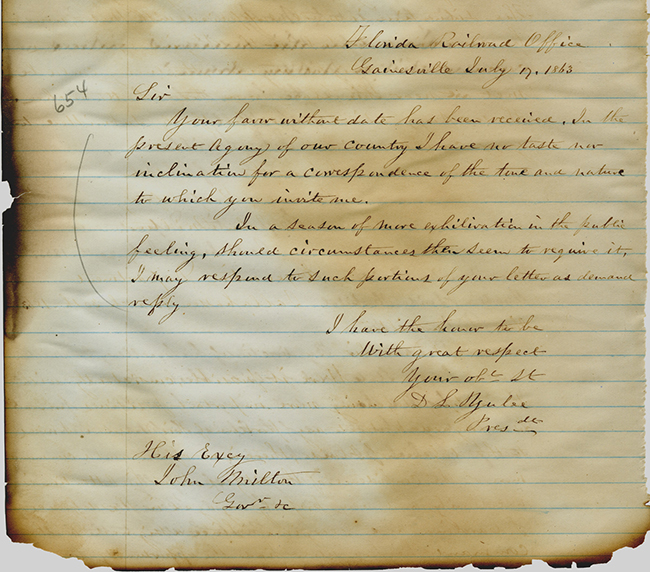 Florida Railroad Office
Gainesville July 17, 1863
654
Sir
Your favor without date has been received. In the
present Agony of our country I have no taste nor
inclination for a correspondence of the tone and nature
to which you invite me.
In a season of more exhiliration in the public
feeling, should circumstances then seem to require it,
I may respond to such portions of your letter as demand
reply.
I have the honor to be
With great respect
Your obt St
D L Yulee
Presdt
His Excy
John Milton
Govr &c